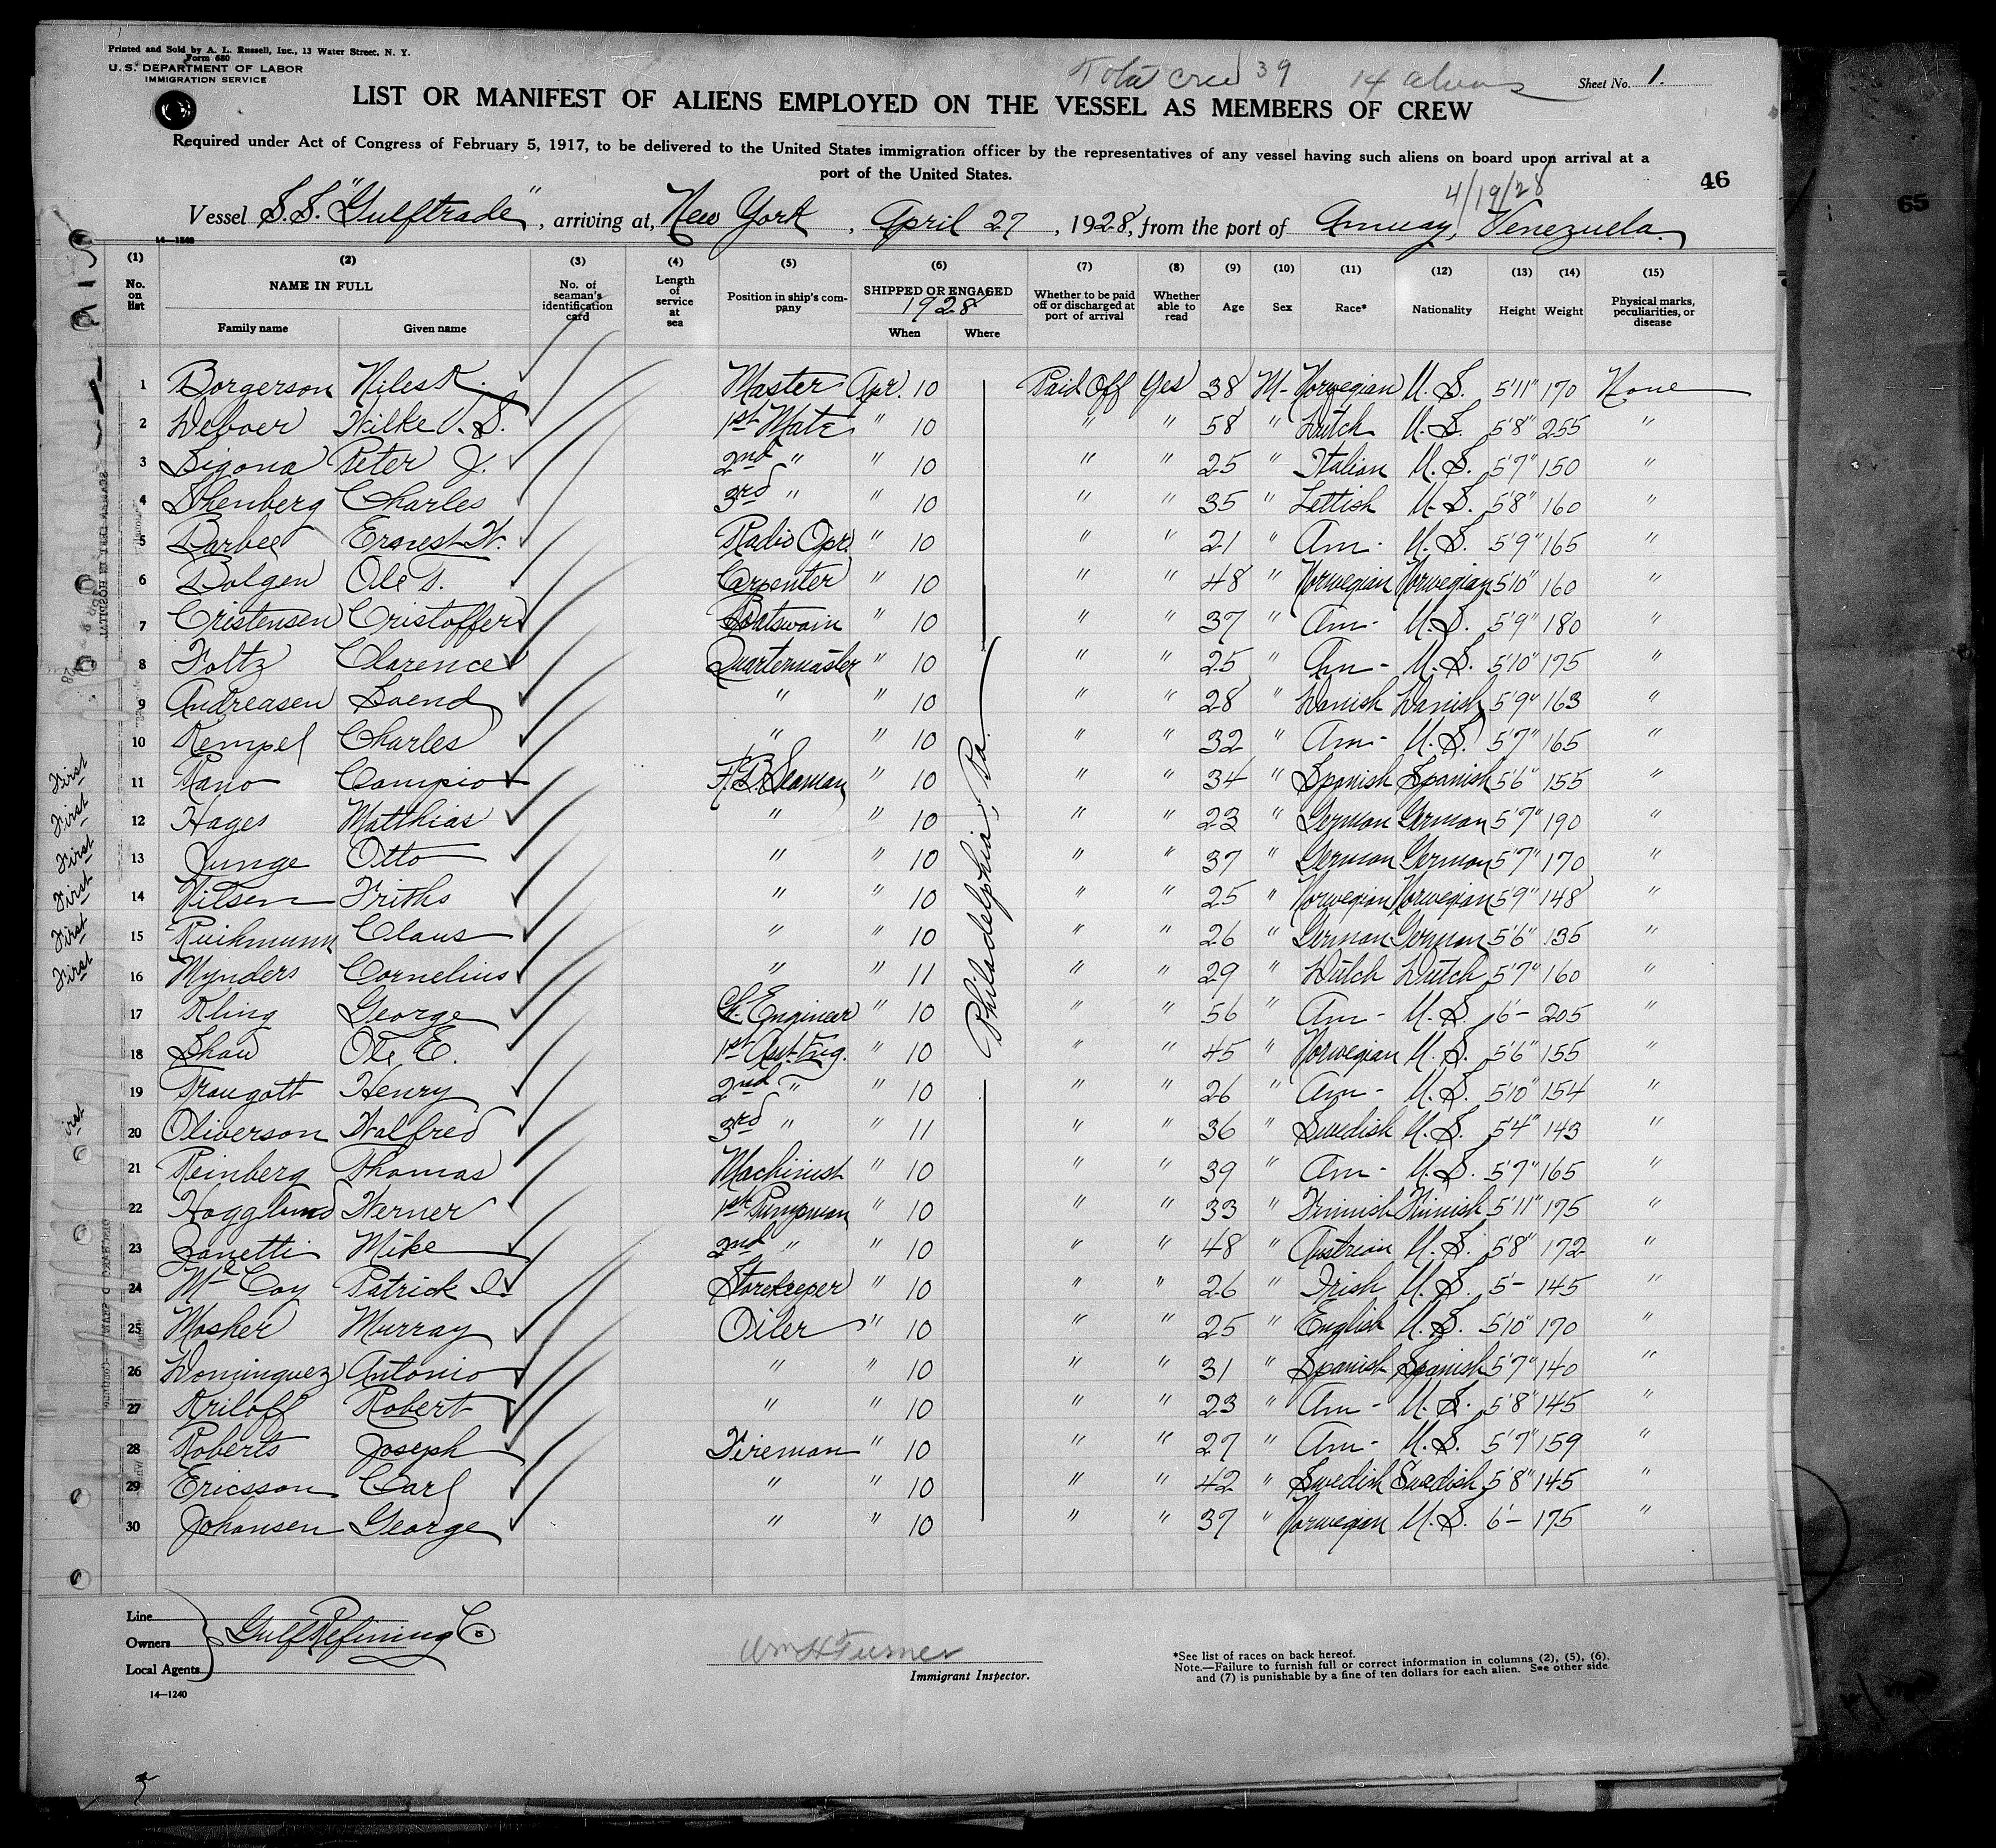 Printed and Sold by A. L. Russell, Inc., 13 Water Street, N. Y.
Form 680
U. S. DEPARTMENT OF LABOR
IMMIGRATION SERVICE
Total crew 39 14 aliens
Sheet No. 1.
LIST OR MANIFEST OF ALIENS EMPLOYED ON THE VESSEL AS MEMBERS OF CREW
Required under Act of Congress of February 5, 1917, to be delivered to the United States immigration officer by the representatives of any vessel having such aliens on board upon arrival at a
port of the United States.
46
65
4/19/28
Vessel S.S. "Gulftrade", arriving at, New York, April 27, 1928, from the port of Amuay, Venezuela.
14-1240
(1) (2) (3) (4) (5) (6) (7) (8) (9) (10) (11) (12) (13) (14) (15)
No. on list NAME IN FULL Family name Given name No. of seaman's identification card Length of service at sea Position in ship's company SHIPPED OR ENGAGED 1928 When Where Whether to be paid off or discharged at port of arrival Whether able to read Age Sex Race* Nationality Height Weight Physical marks, peculiarities, or disease
1 Borgerson Niles R. Master Apr. 10 Paid Off Yes 38 M- Norwegian U.S. 5'11" 170 None
2 Deboer Wilke J.S. 1st Mate " 10 " " 58 " Dutch U.S. 5'8" 255 "
3 Sigona Peter J. 2nd " " 10 " " 25 " Italian U.S. 5'7" 150 "
4 Shenberg Charles 3rd " " 10 " " 35 " Lettish U.S. 5'8" 160 "
5 Barbee Ernest W. Radio Opr. " 10 " " 21 " Am- U.S. 5'9" 165 "
6 Bolgen Ole T. Carpenter " 10 " " 48 " Norwegian Norwegian 5'10" 160 "
7 Cristensen Cristoffer Boatswain " 10 " " 37 " Am- U.S. 5'9" 180 "
8 Foltz Clarence Quartermaster " 10 " " 25 " Am- U.S. 5'10" 175 "
9 Andreasen Svend " " 10 " " 28 " Danish Danish 5'9" 163 "
10 Rempel Charles " " 10 " " 32 " Am- U.S. 5'7" 165 "
First 11 Rano Campio A.B. Seaman " 10 " " 34 " Spanish Spanish 5'6" 155 "
First 12 Hages Matthias " " 10 " " 23 " German German 5'7" 190 "
First 13 Junge Otto " " 10 " " 37 " German German 5'7" 170 "
First 14 Nilsen Friths " " 10 " " 25 " Norwegian Norwegian 5'9" 148 "
First 15 Claus " " 10 " " 26 " German German 5'6" 135 "
First 16 Mynders Cornelius " " 11 " " 29 " Dutch Dutch 5'7" 160 "
17 Kling George Ch. Engineer " 10 " " 56 " Am- U.S. 6'- 205 "
18 Shaw Ole E. 1st Asst. Eng. " 10 " " 45 " Norwegian U.S. 5'6" 155 "
19 Traugott Henry 2nd " " 10 " " 26 " Am- U.S. 5'10" 154 "
irst 20 Oliverson Walfred 3rd " " 11 " " 36 " Swedish U.S. 5'4" 143 "
21 Reinberg Thomas Machinist " 10 " " 39 " Am- U.S. 5'7" 165 "
22 Hagglund Werner 1st Pumpman " 10 " " 33 " Finnish Finnish 5'11" 175 "
23 Zanetti Mike 2nd " " 10 " " 48 " Austrian U.S. 5'8" 172 "
24 McCoy Patrick Storekeeper " 10 " " 26 " Irish U.S. 5'- 145 "
25 Mosher Murray Oiler " 10 " " 25 " English U.S. 5'10" 170 "
26 Dominguez Antonio " " 10 " " 31 " Spanish Spanish 5'7" 140 "
27 Kriloff Robert " " 10 " " 23 " Am- U.S. 5'8" 145 "
28 Roberts Joseph Fireman " 10 " " 27 " Am- U.S. 5'7" 159 "
29 Ericsson Carl " " 10 " " 42 " Swedish Swedish 5'8" 145 "
30 Johansen George " " 10 " " 37 " Norwegian U.S. 6'- 175 "
Philadelphia, Pa.
Line
Owners Gulf Refining Co
Local Agents
14—1240
Wm H Turner
Immigrant Inspector.
*See list of races on back hereof.
Note.—Failure to furnish full or correct information in columns (2), (5), (6),
and (7) is punishable by a fine of ten dollars for each alien. See other side